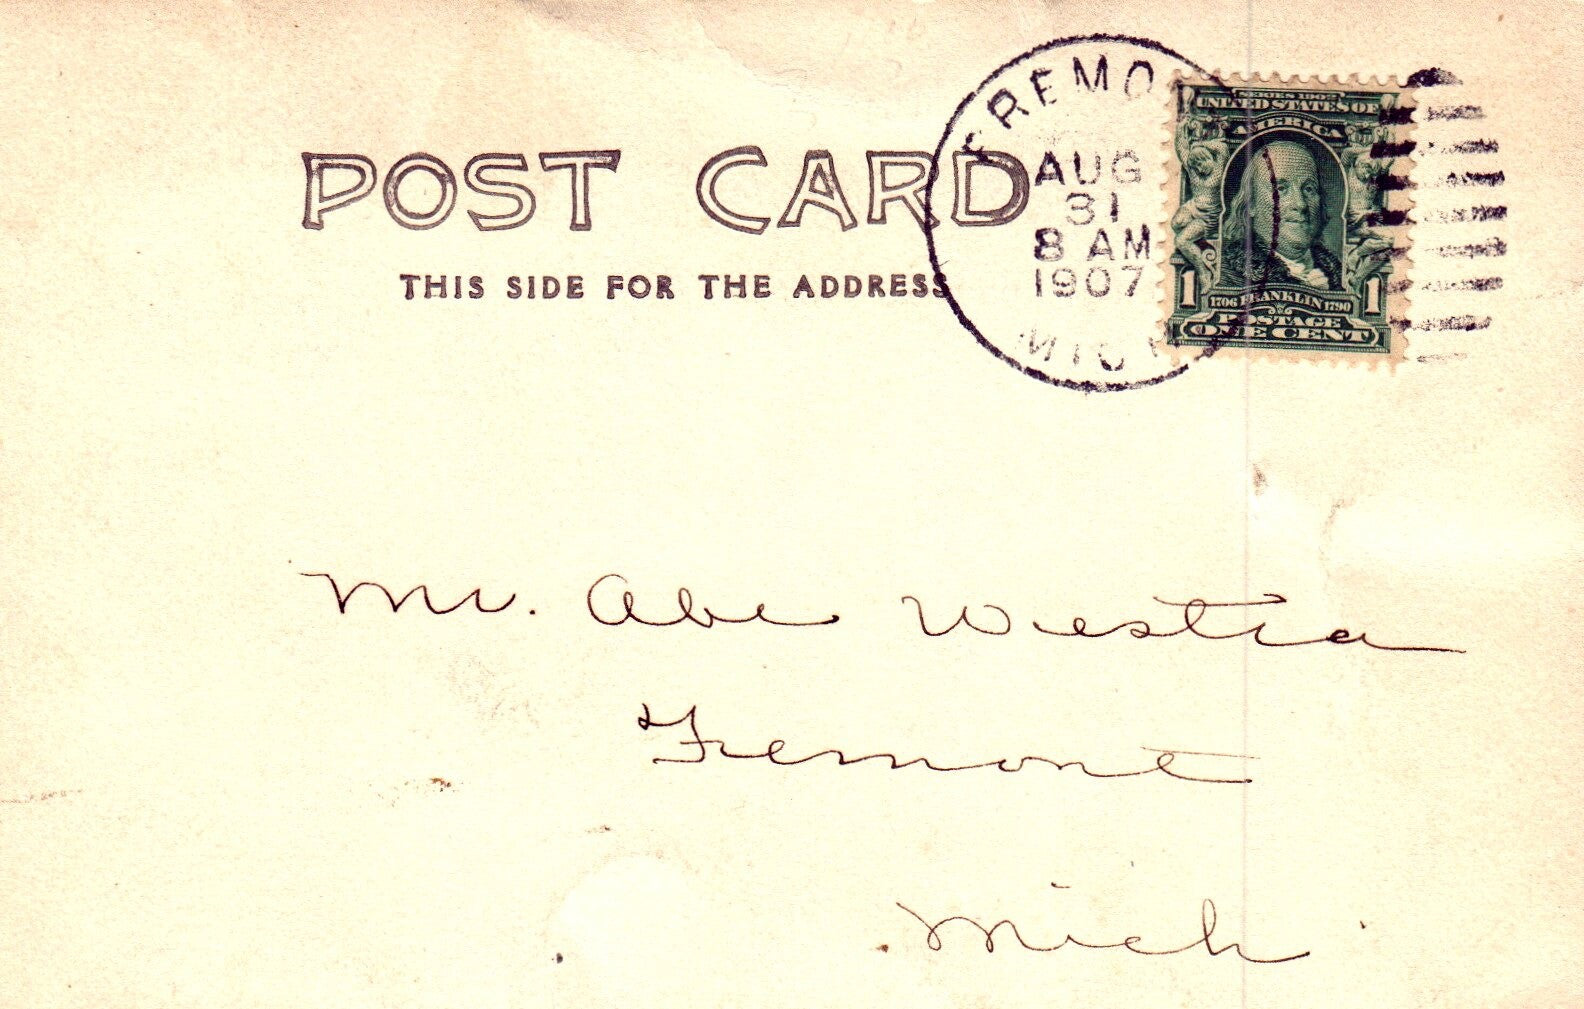 FREMO
AUG
31
8 AM
1907
MICH
SERIES 1902
UNITED STATES OF
AMERICA
1 1
1706 FRANKLIN 1790
POSTAGE
ONE CENT
POST CARD
THIS SIDE FOR THE ADDRESS
Mr. Abe Westra
Fremont
Mich